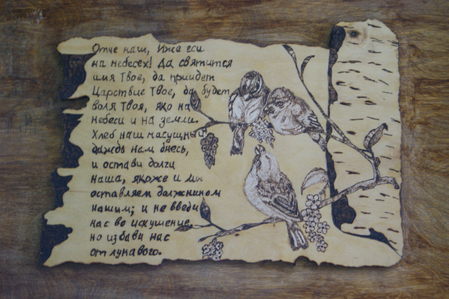 Отче наш, Иже еси
на небесех! Да святится
имя Твое, да приидет
Царствие Твое, да будет
воля Твоя, яко на
небеси и на земли.
Хлеб наш насущный
даждь нам днесь,
и остави долги
наша, якоже и мы
оставляем должником
нашим; и не введи
нас во искушение,
но избави нас
от лукавого.